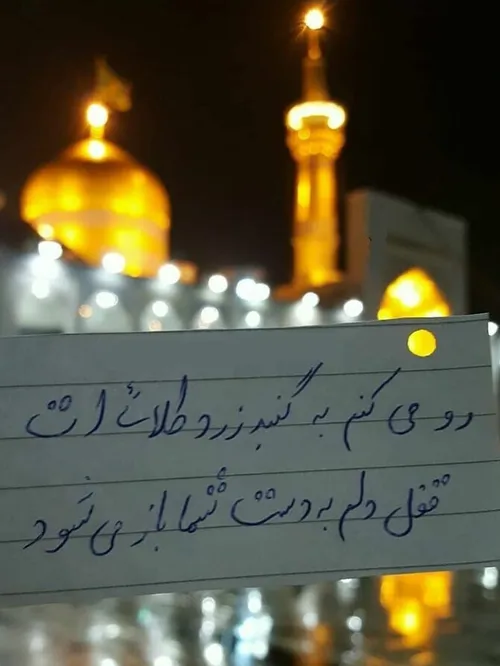 رو می کنم به گنبد زرد و طلائی ات
قفل دلم به دست شما باز می شود